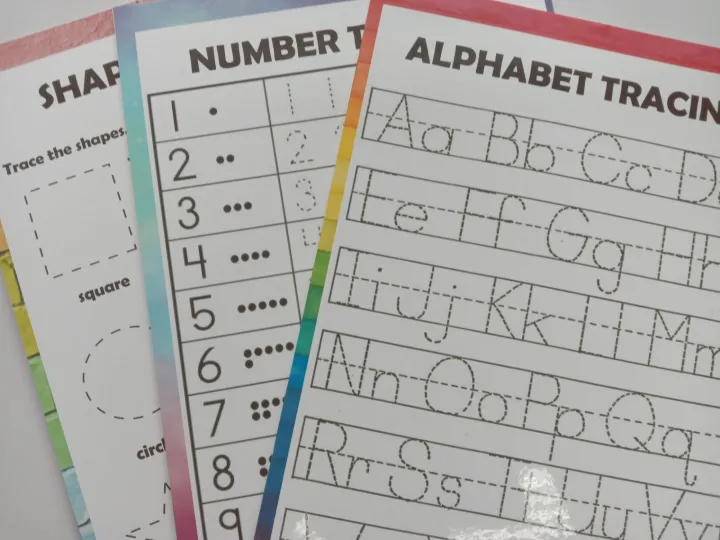 SHAP
Trace the shapes.
square
circl
NUMBER T
1 1 1
2 2
3 3
4 4
5
6
7
8
9
ALPHABET TRACIN
Aa Bb Cc D
Ee Ff Gg Hh
Ii Jj Kk Ll Mm
Nn Oo Pp Qq
Rr Ss Tt Uu Vv